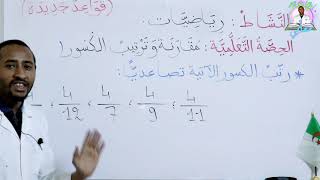 (قواعد جديدة)
النَّشَاطُ: رِيَاضِيَّات.
الحِصَّةُ التَّعَلُّمِيَّةُ: مُقَارَنَةُ وَتَرْتِيبُ الكُسُور
• رَتِّبْ الكسور الآتية تصاعديًّا:
4/11 ، 4/9 ، 4/7 ، 4/12 ،